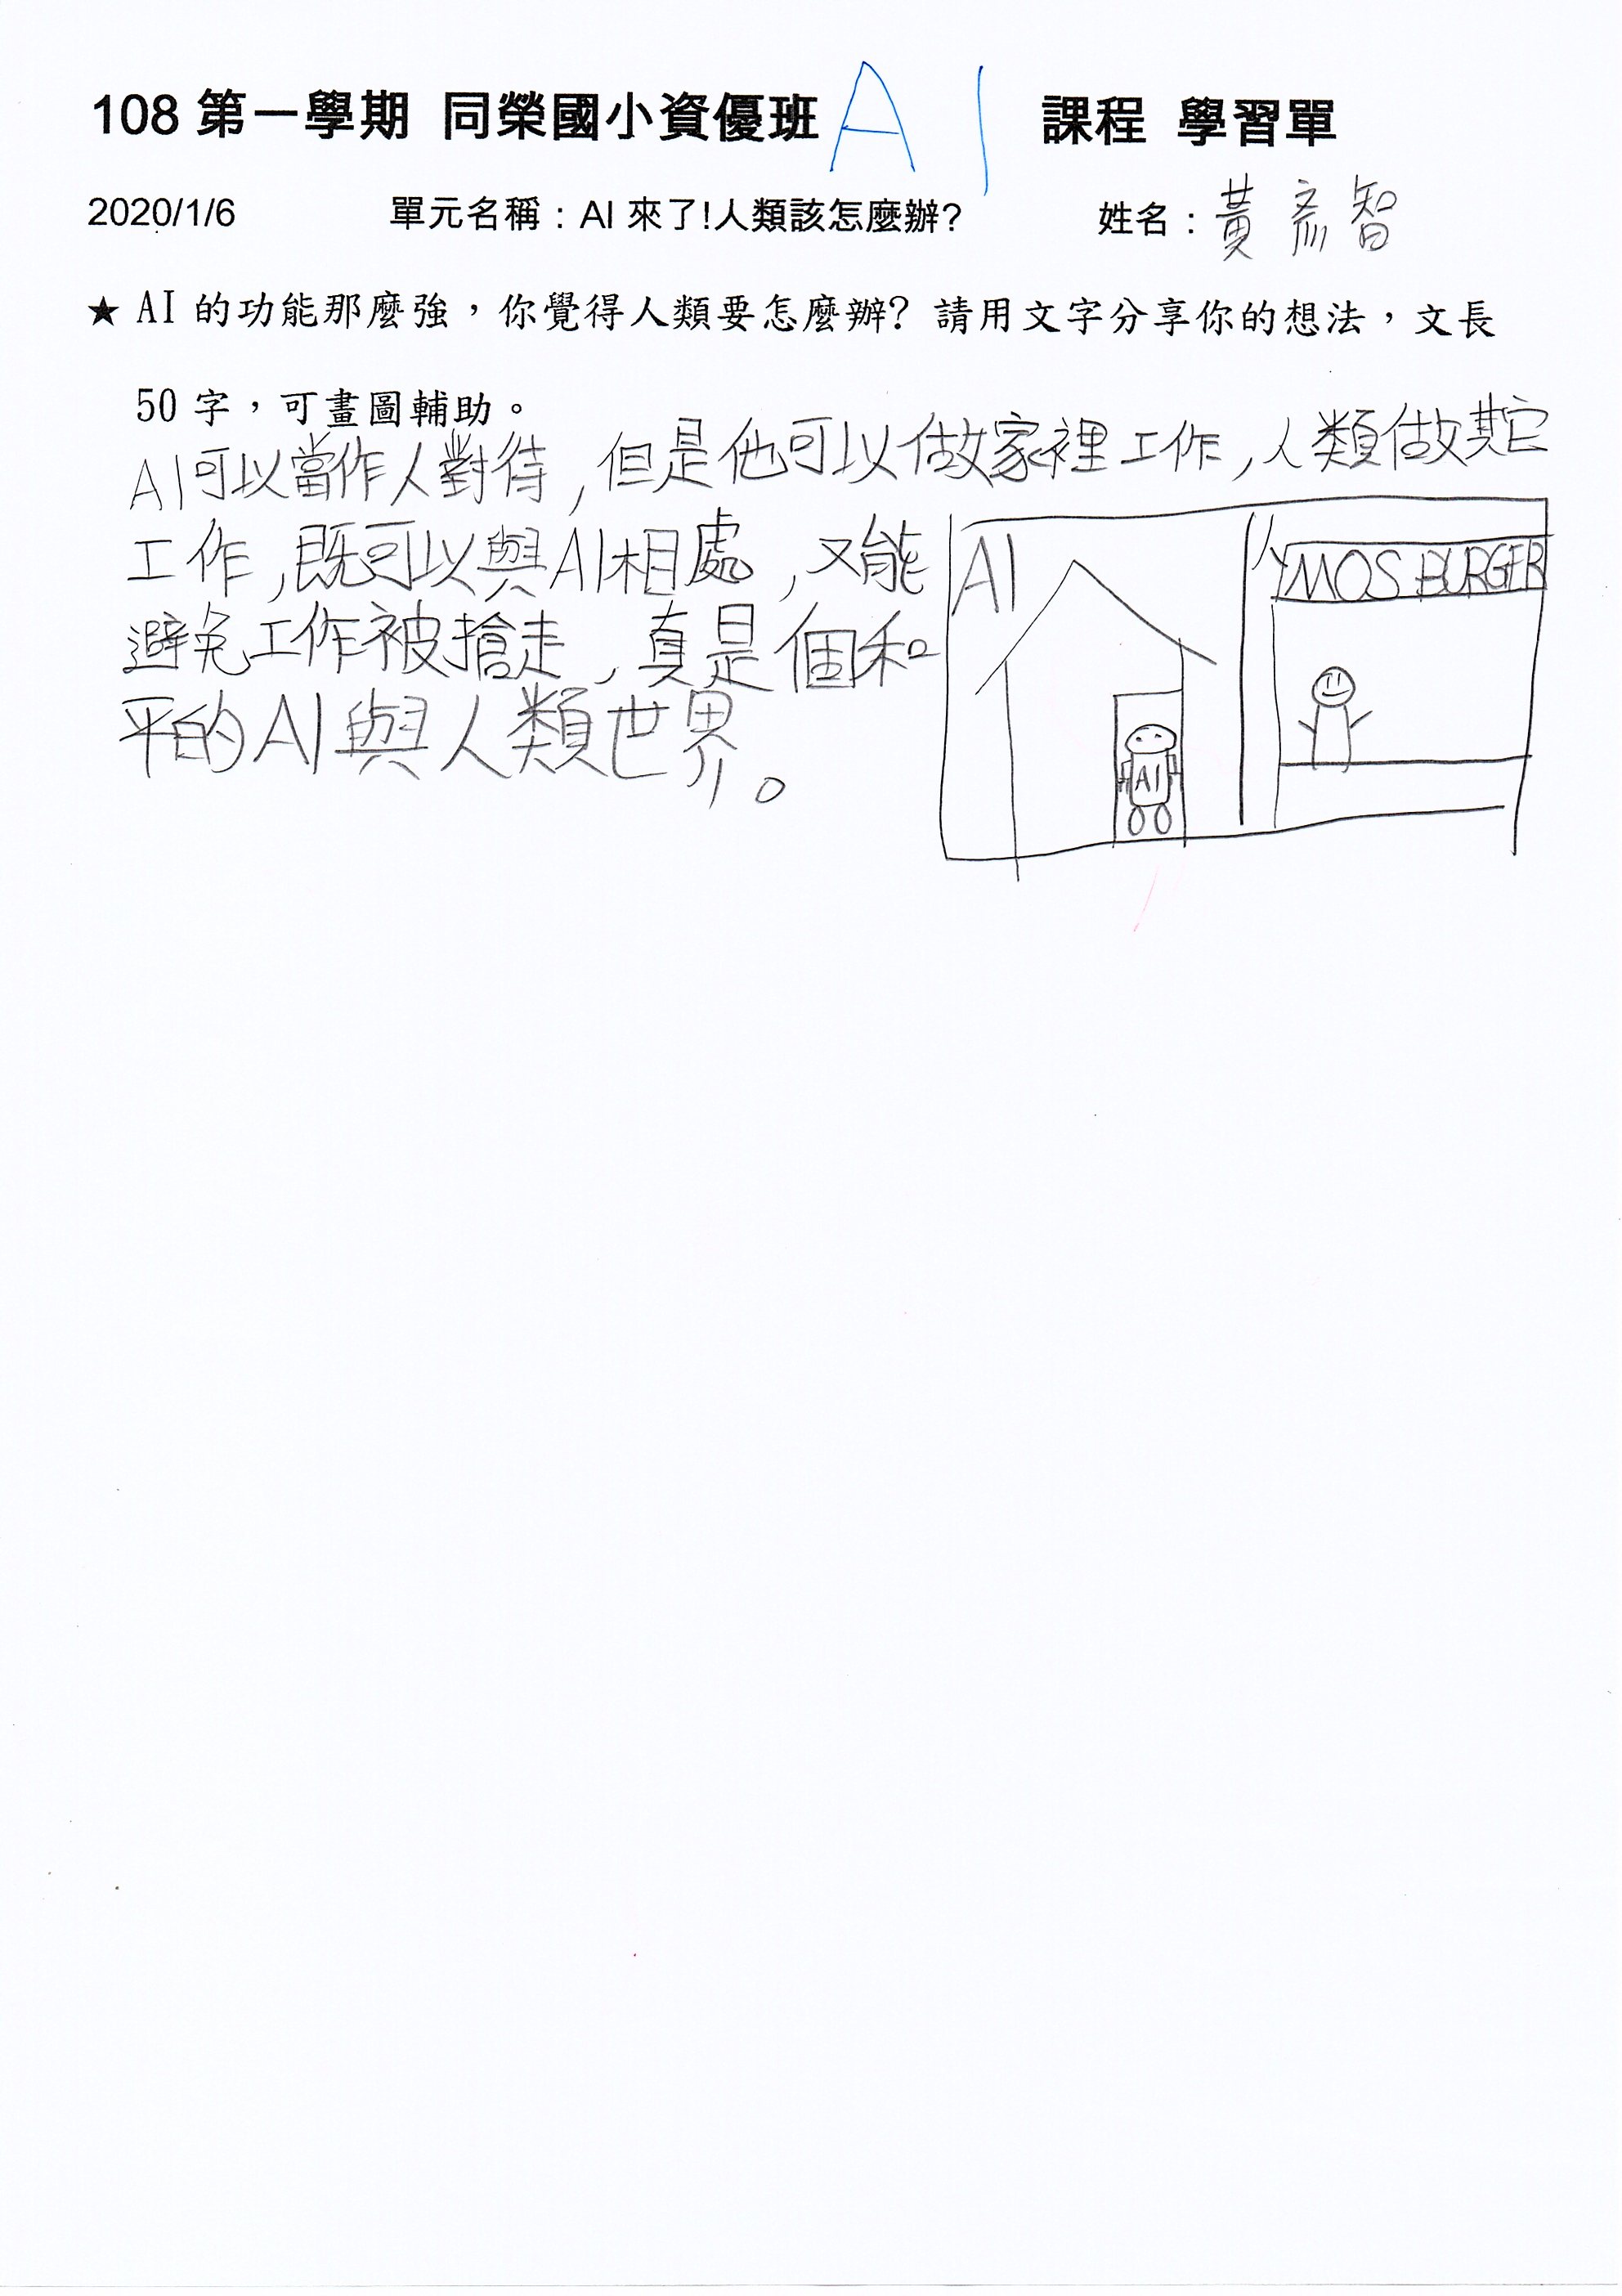 108 第一學期 同榮國小資優班 AI 課程 學習單
2020/1/6 單元名稱：AI 來了!人類該怎麼辦? 姓名：黃彥智
★ AI 的功能那麼強，你覺得人類要怎麼辦? 請用文字分享你的想法，文長
50 字，可畫圖輔助。
AI可以當作人對待,但是他可以做家裡工作,人類做其它
工作,既可以與AI相處,又能
避免工作被搶走,真是個和
平的AI與人類世界。
AI
人
MOS BURGER
AI